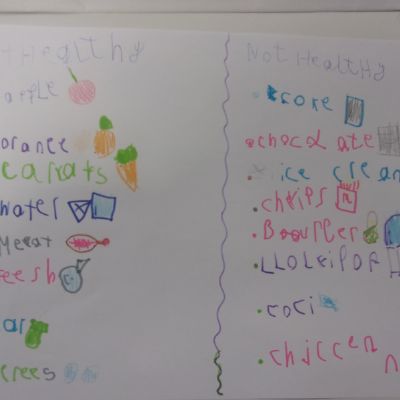 Healthy
apple
orance
carats
water
Meeat
eesh
ar
crees
Not Healthy
chocolate
ice crean
chrips
Boourller
LLOLCipop
coci
chiccen n